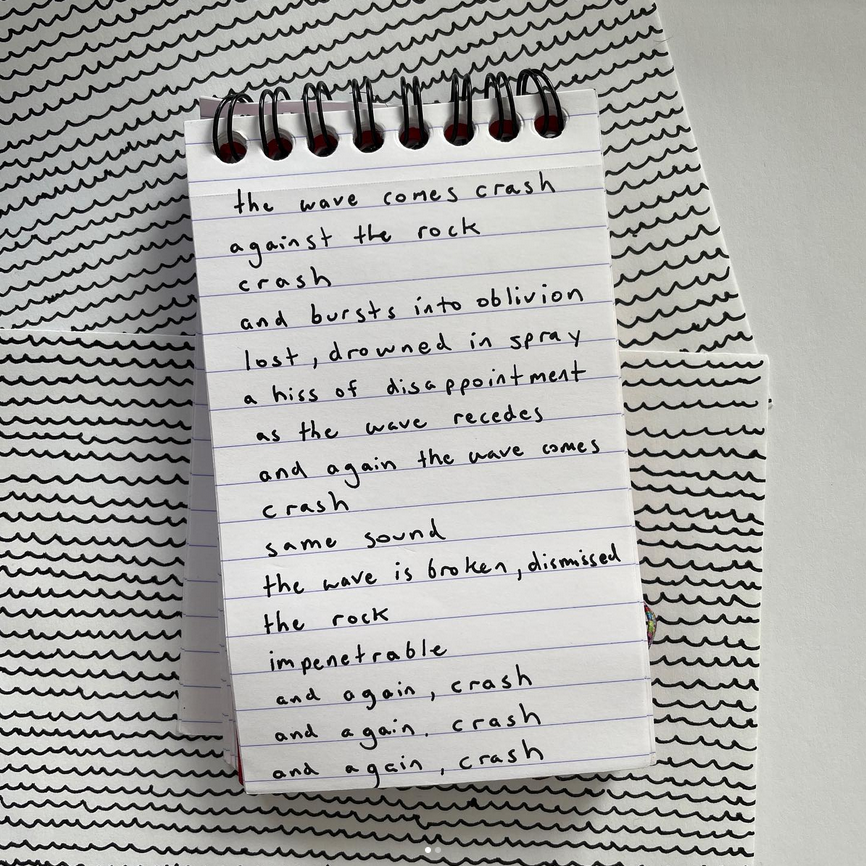 the wave comes crash
against the rock
crash
and bursts into oblivion
lost, drowned in spray
a hiss of disappointment
as the wave recedes
and again the wave comes
crash
same sound
the wave is broken, dismissed
the rock
impenetrable
and again, crash
and again. crash
and again, crash